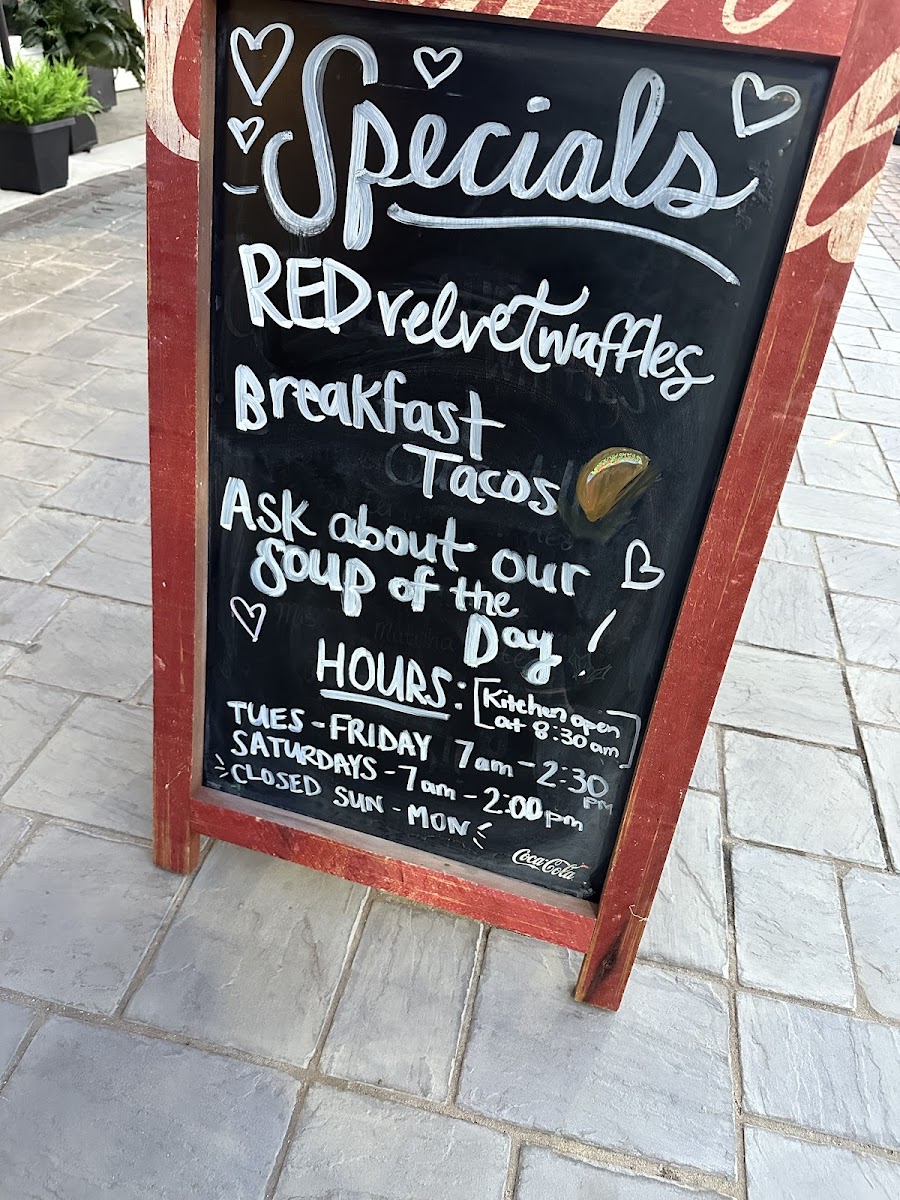 Specials
RED velvet waffles
Breakfast
Tacos
Ask about our
Soup of the
Day!
HOURS: [Kitchen open
at 8:30am]
TUES - FRIDAY 7am - 2:30
PM
SATURDAYS - 7am - 2:00pm
CLOSED SUN - MON
Coca-Cola